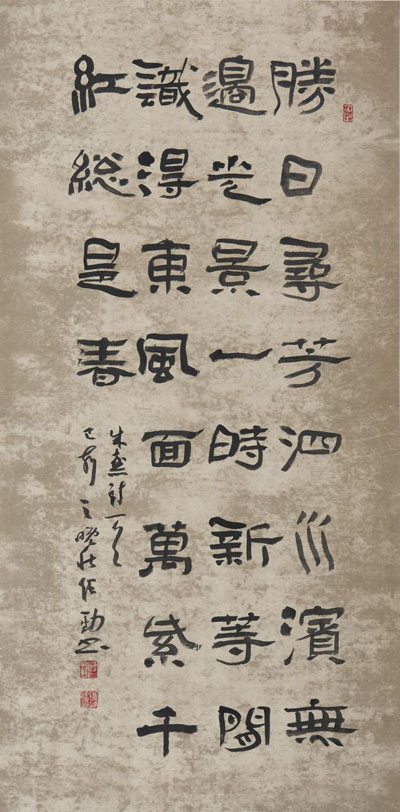 勝日尋芳泗水濱無
邊光景一時新等閒
識得東風面萬紫千
紅総是春
朱熹詩一首
勁書